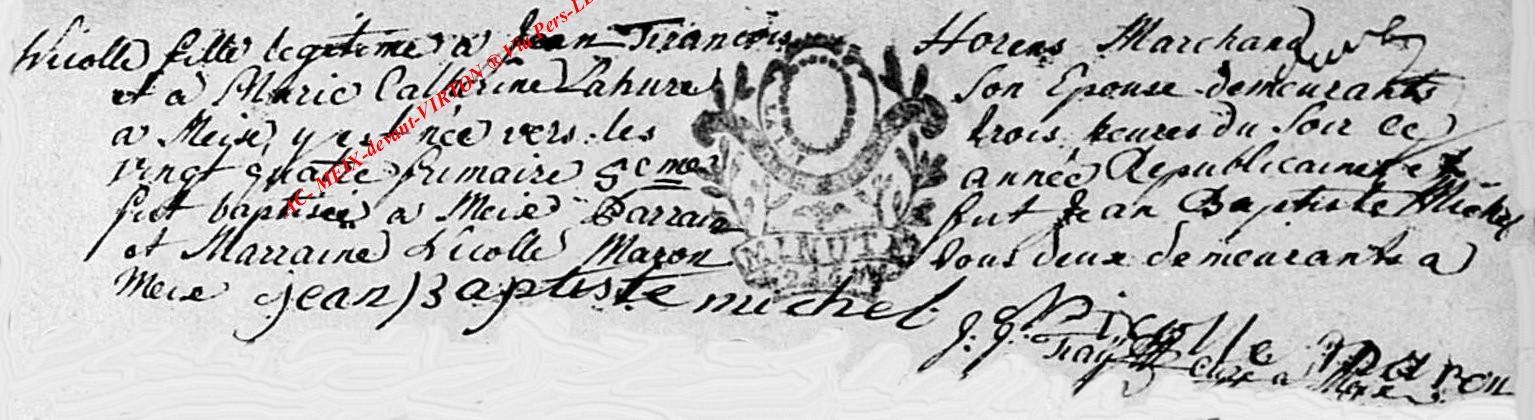 Nicolle fille legitime a Jean François Horens Marchand
et a Marie Catherine Lahure Son Epouse demeurants
a Meix, y est née vers les trois heures du Soir le
vingt quatre frimaire 9eme année Republicaine et
fut baptisée a Meix Parrain fut Jean Baptiste Michel
et Marraine Nicolle Maron tous deux demeurants a
Meix jean Baptiste michel
Nicolle maron
J. J. a Meix
MINUTE
AC- MEIX-devant-VIRTON ® Via Pers-LE